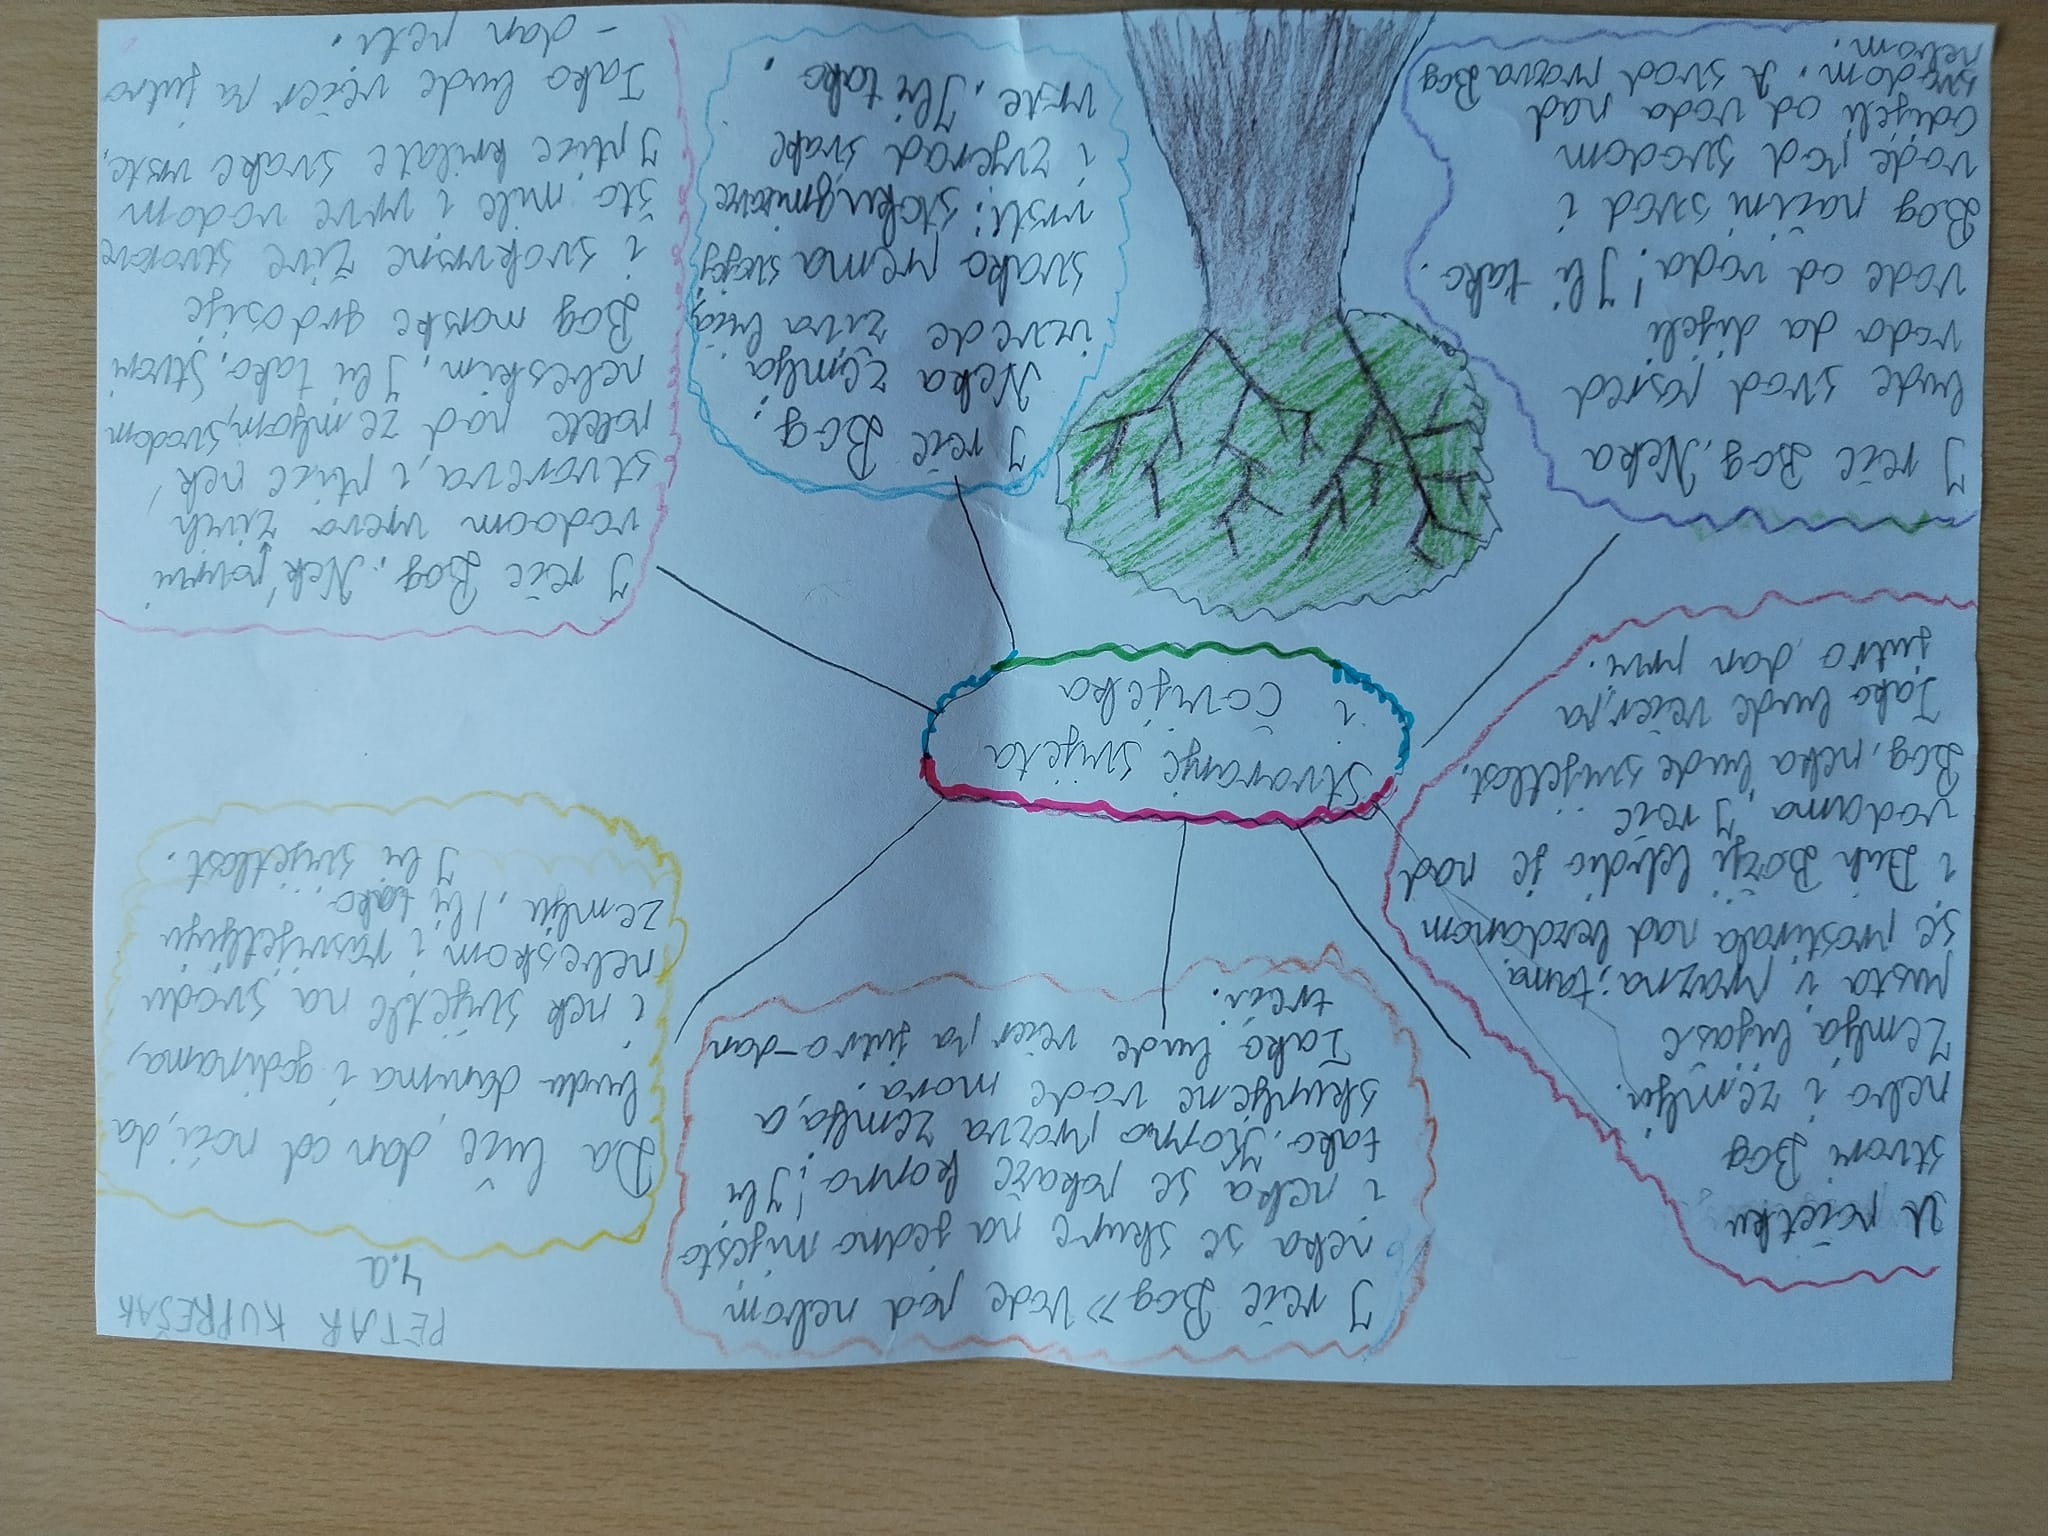 PETAR KUPREŠAK
4.a
Stvaranje svijeta
i čovjeka
U početku
stvori Bog
nebo i zemlju.
Zemlja bijaše
pusta i prazna; tama
se prostirala nad bezdanom
i Duh Božji lebdio je nad
vodama. I reče
Bog, neka bude svijetlost.
Tako bude večer, pa
jutro dan prvi.
I reče Bog, Neka
bude svod posred
voda da dijeli
vode od voda! I bi tako.
Bog načini svod i
vode pod svodom
odijeli od voda nad
svodom. A svod prozva Bog
nebom.
I reče Bog» Vode pod nebom
neka se skupe na jedno mjesto
i neka se pokaže kopno! I bi
tako. Kopno prozva zemlja, a
skupljene vode mora.
Tako bude večer pa jutro-dan
treći.
Da luče dan od noći, da
budu danima i godinama,
i nek svijetle na svodu
nebeskom i rasvijetljuju
zemlju, I bi tako.
I bi svijetlost.
I reče Bog: Nek' povrvi
vodoom vreva živih
stvoreva, i ptice nek'
polete nad zemljom, svodom
nebeskim, I bi tako, Stvori
Bog morske grdosije
i svakvrsne žive stvorove
što mile i vrve vodom
I ptice krilate svake vrste,
Tako bude večer pa jutro
- dan peti.
I reče Bog:
Neka zemlja
izvede živa bića,
svako prema svojoj
vrsti: stoku, gmizavce
i zvjerad svake
vrste, I bi tako.